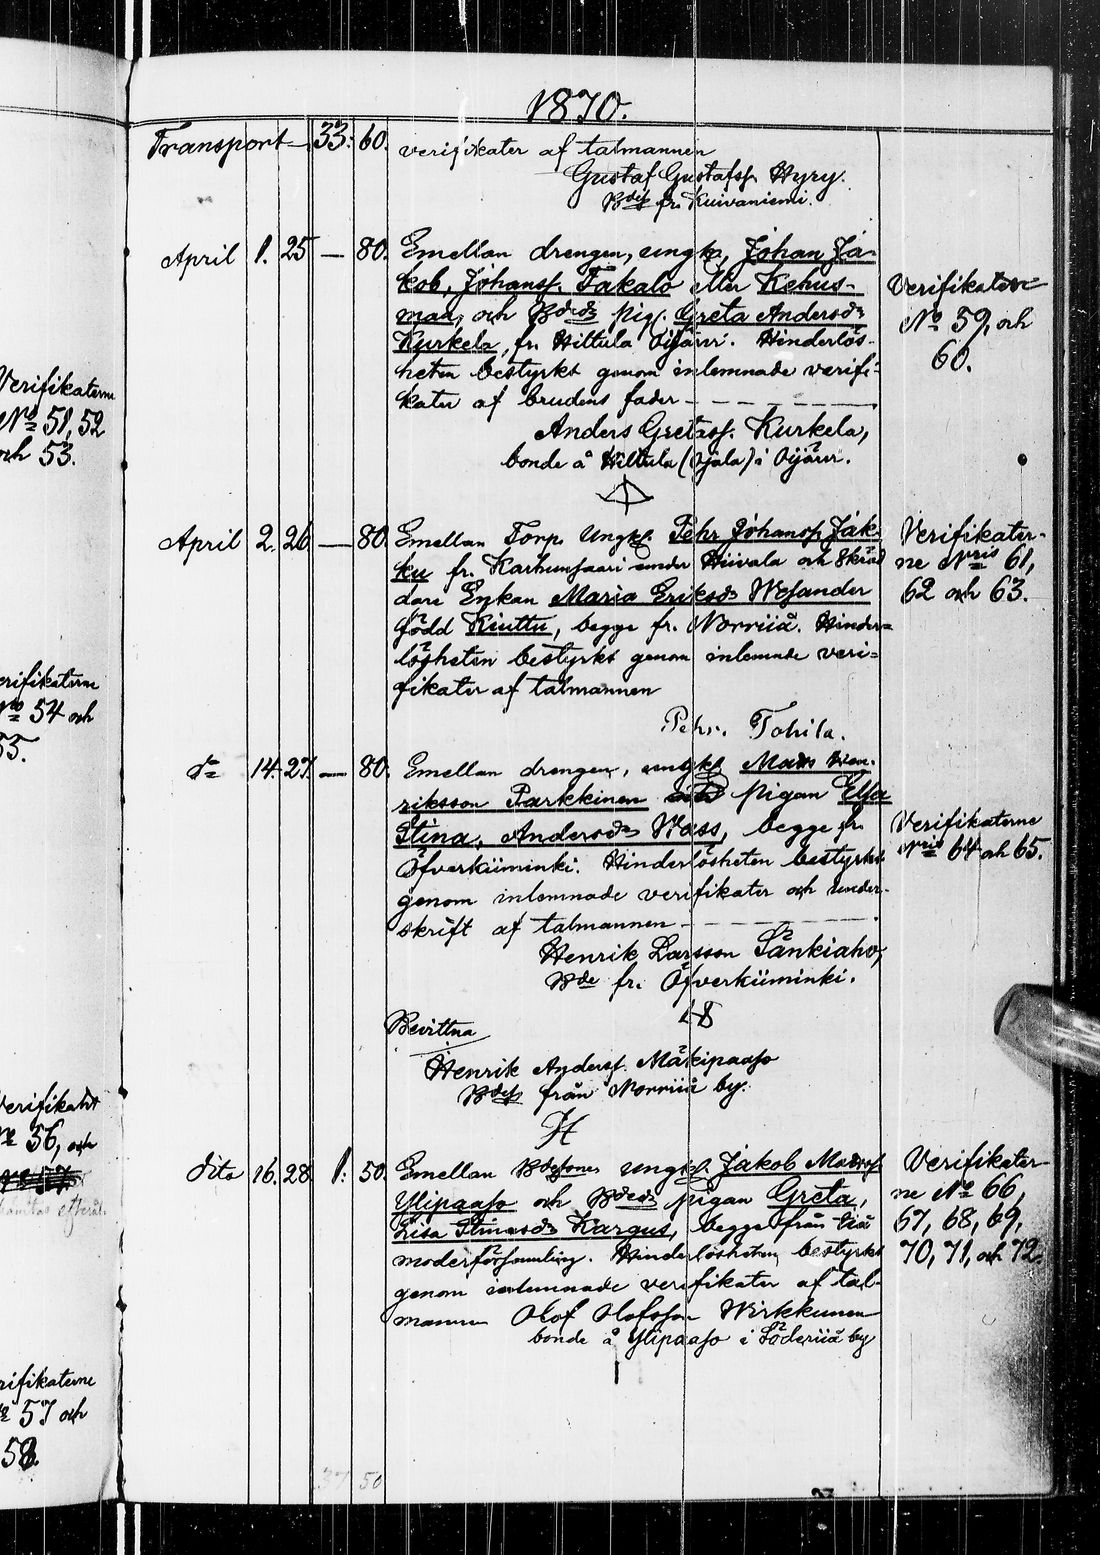 Verifikaterne
No 51, 52
och 53.
erifikaterne
No 54 och
55.
Verifikater
No 56, och
rifikaterne
57 och
58.
1870.
Transport 33: 60. verifikater af talmannen
Gustaf Gustafss. Hyry.
Bdess fr. Kuivaniemi.
April 1. 25 — 80. Emellan drengen, ungk., Johan Ja-
kob, Johanss. Takalo eller Kehus-
maa, och Bdeds pig. Greta Andersdr
Kurkela, fr. Hiltula Oijärvi. Hinderlös-
heten bestyrkt genom inlemnade verifi-
kater af brudens fader
Verifikaterne
No 59, och
60.
Anders Gretass. Kurkela,
bonde å Hiltula (Ojala) i Oijärvi.
April 2. 26 — 80. Emellan Torp. Ungk. Pehr Johanss. Jak-
ku fr. Karhunsaari under Hiivala och Skräd
dare Enkan Maria Eriksdr Wesander
född Kiuttu, begge fr. Norriiå. Hinder=
lösheten bestyrkt genom inlemnade veri=
fikater af talmannen
Verifikater-
ne Nris 61,
62 och 63.
Pehr. Tohila.
do 14. 27. — 80. Emellan drengen, ungk. Mats Hen-
riksson Parkkinen och pigan Elsa
Stina, Andersdr Wass, begge fr.
Öfverkiiminki. Hinderlösheten bestyrkt
genom inlemnade verifikater och under-
skrift af talmannen
Verifikaterne
Nris 64 och 65.
Henrik Larsson Sankiaho,
Bde fr. Öfverkiiminki.
Bevittna
Henrik Anderss. Mäkipaaso
Bdess från Norriiå by.
H
dito 16. 28. 1: 50. Emellan Bdesonen ungk. Jakob Matss
Ylipaaso och Bdeds pigan Greta,
Lisa Simasdr Kargus, begge från Iiå
moderförsamling. Hinderlösheten bestyrkt
genom inlemnade verifikater af tal-
mannen Olof Olofsson Wirkkunen
bonde å Ylipaaso i Söderiiå by
Verifikater-
ne No 66,
67, 68, 69,
70, 71, och 72.
37 50